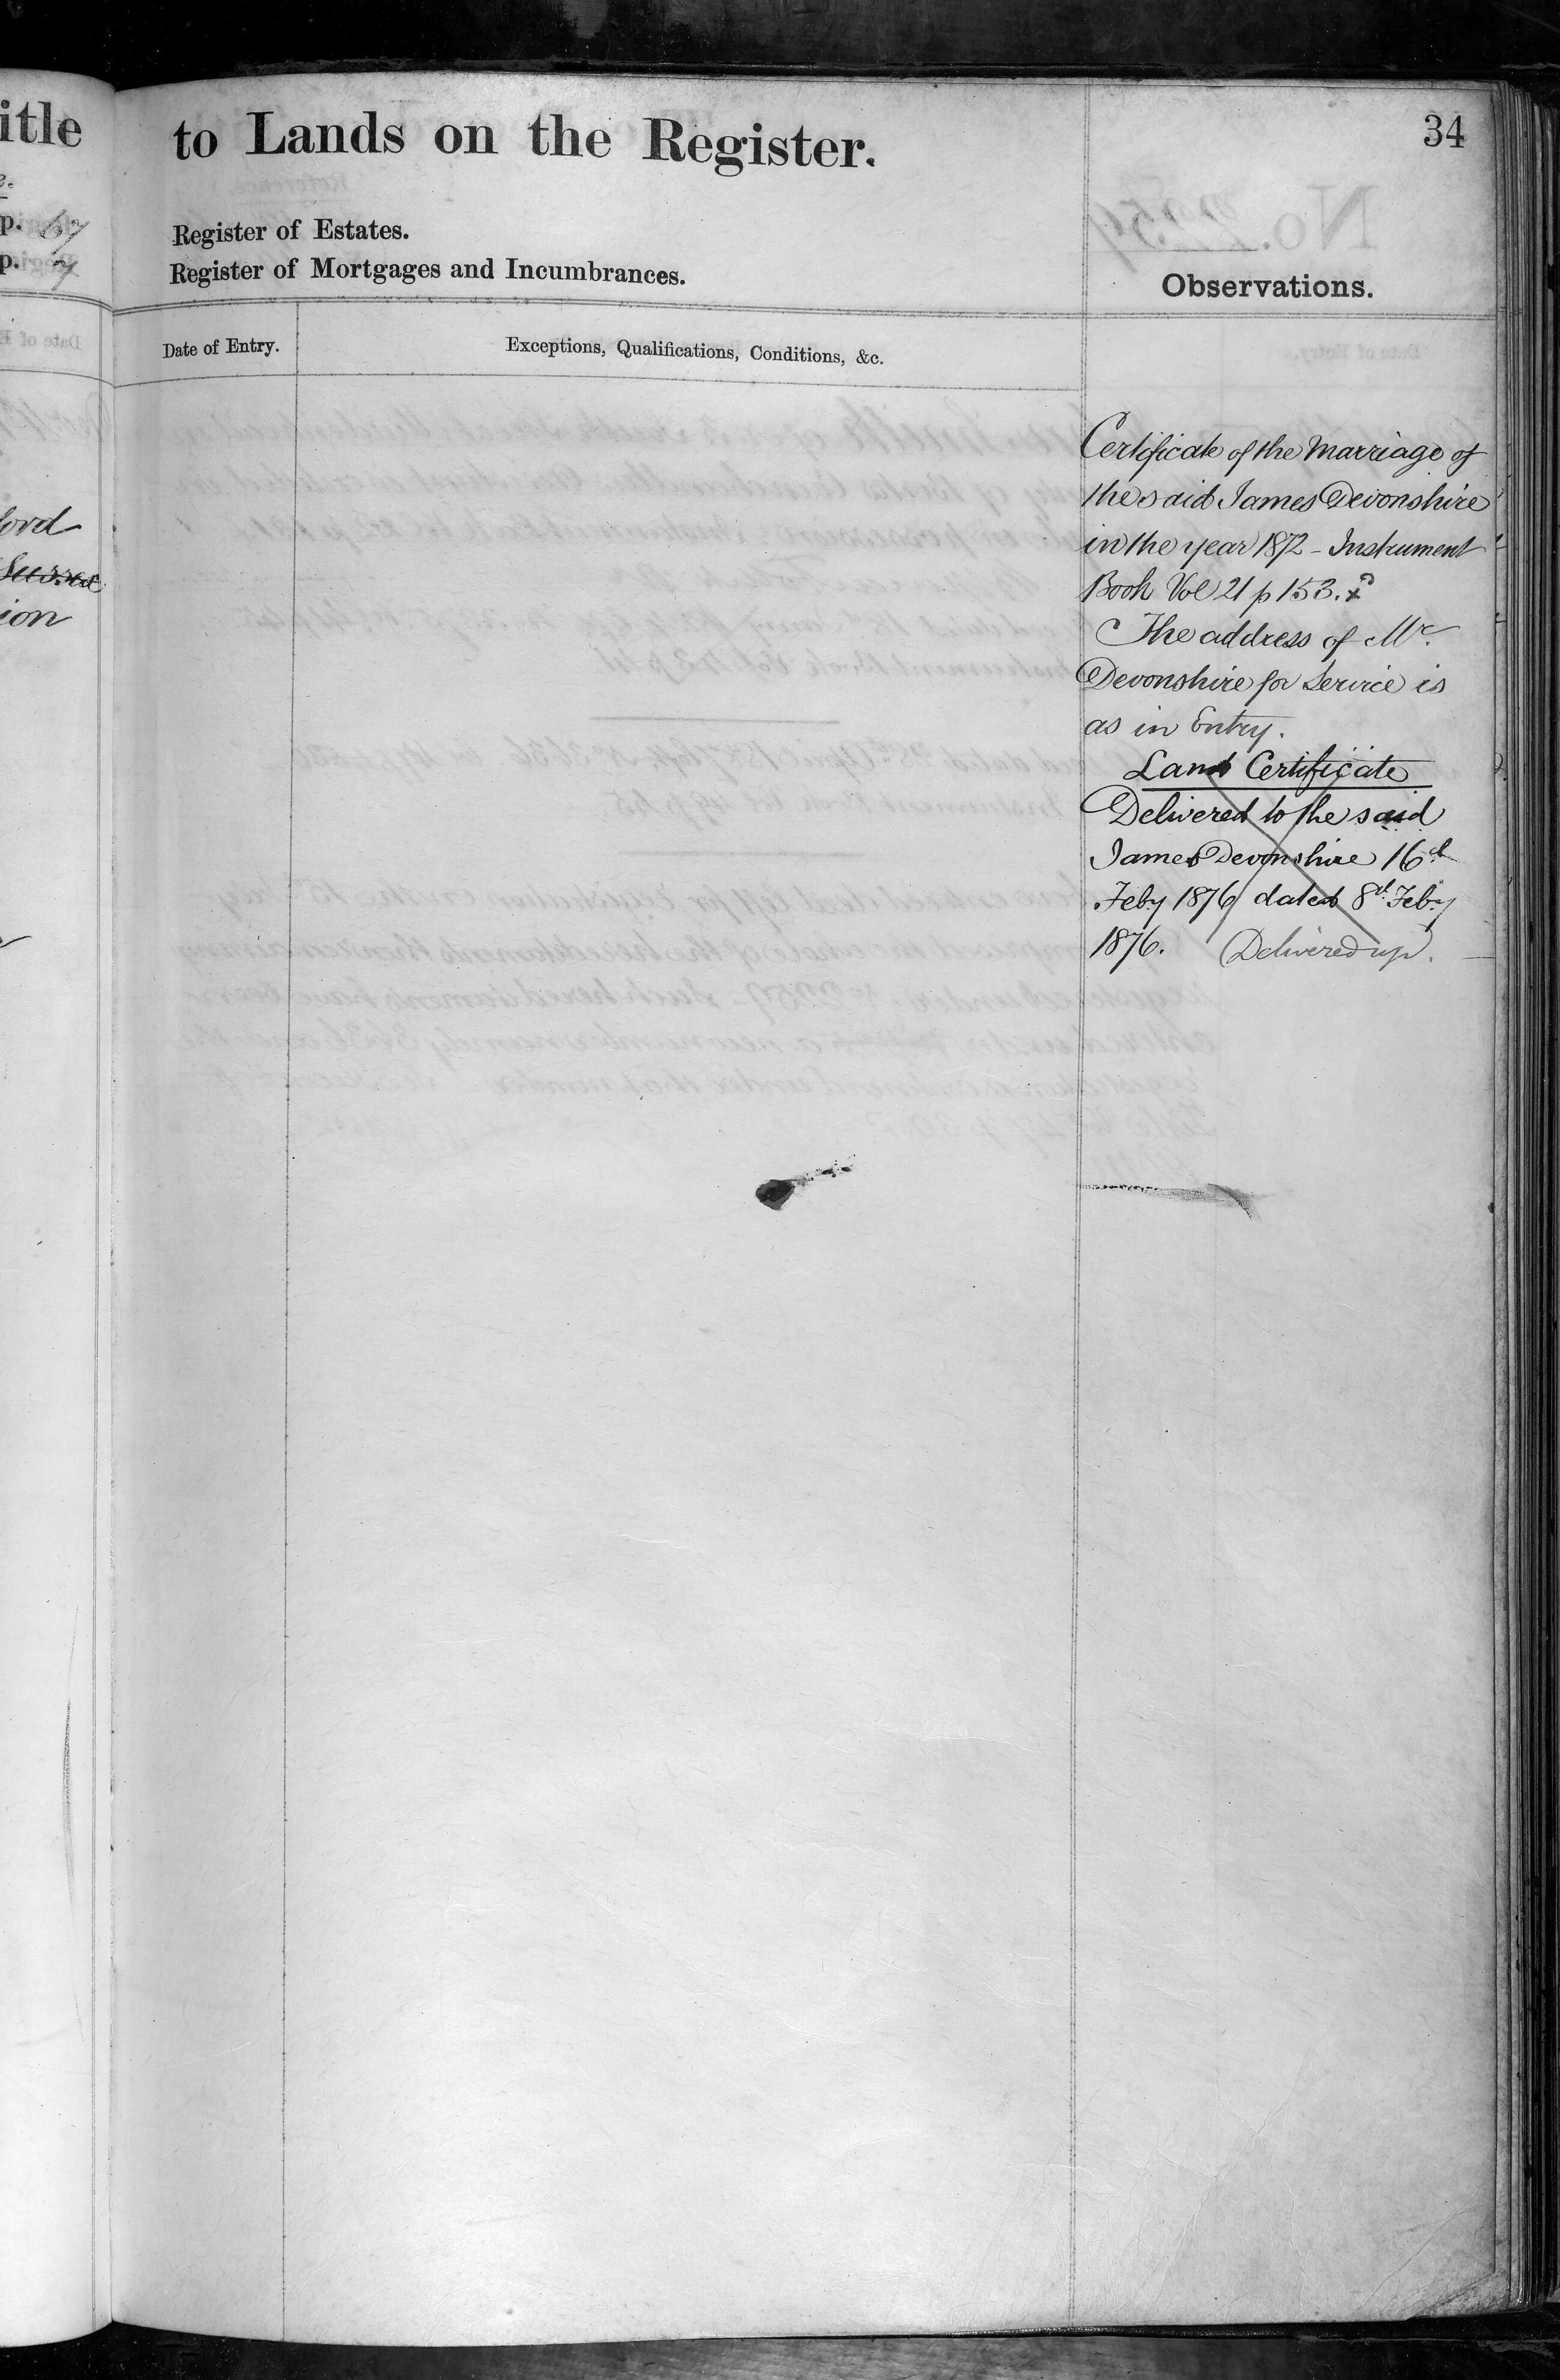 itle
p. 67
p. 7
ford
ion
to Lands on the Register.
34
Register of Estates.
Register of Mortgages and Incumbrances.
Observations.
Date of Entry.
Exceptions, Qualifications, Conditions, &c.
Certificate of the Marriage of
the said James Devonshire
in the year 1872 - Instrument
Book Vol 21 p 153.
The address of Mr.
Devonshire for Service is
as in Entry.
Land Certificate
Delivered to the said
James Devonshire 16th
Feby 1876 dated 8th Feby
1876. Delivered up.